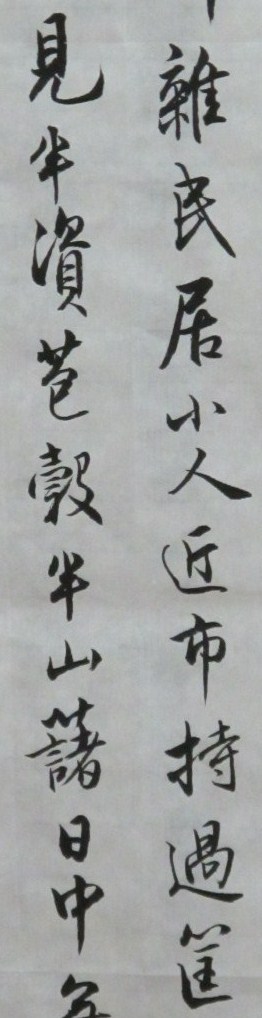 雜民居小人近市持過筐
見半資苞穀半山藷日中